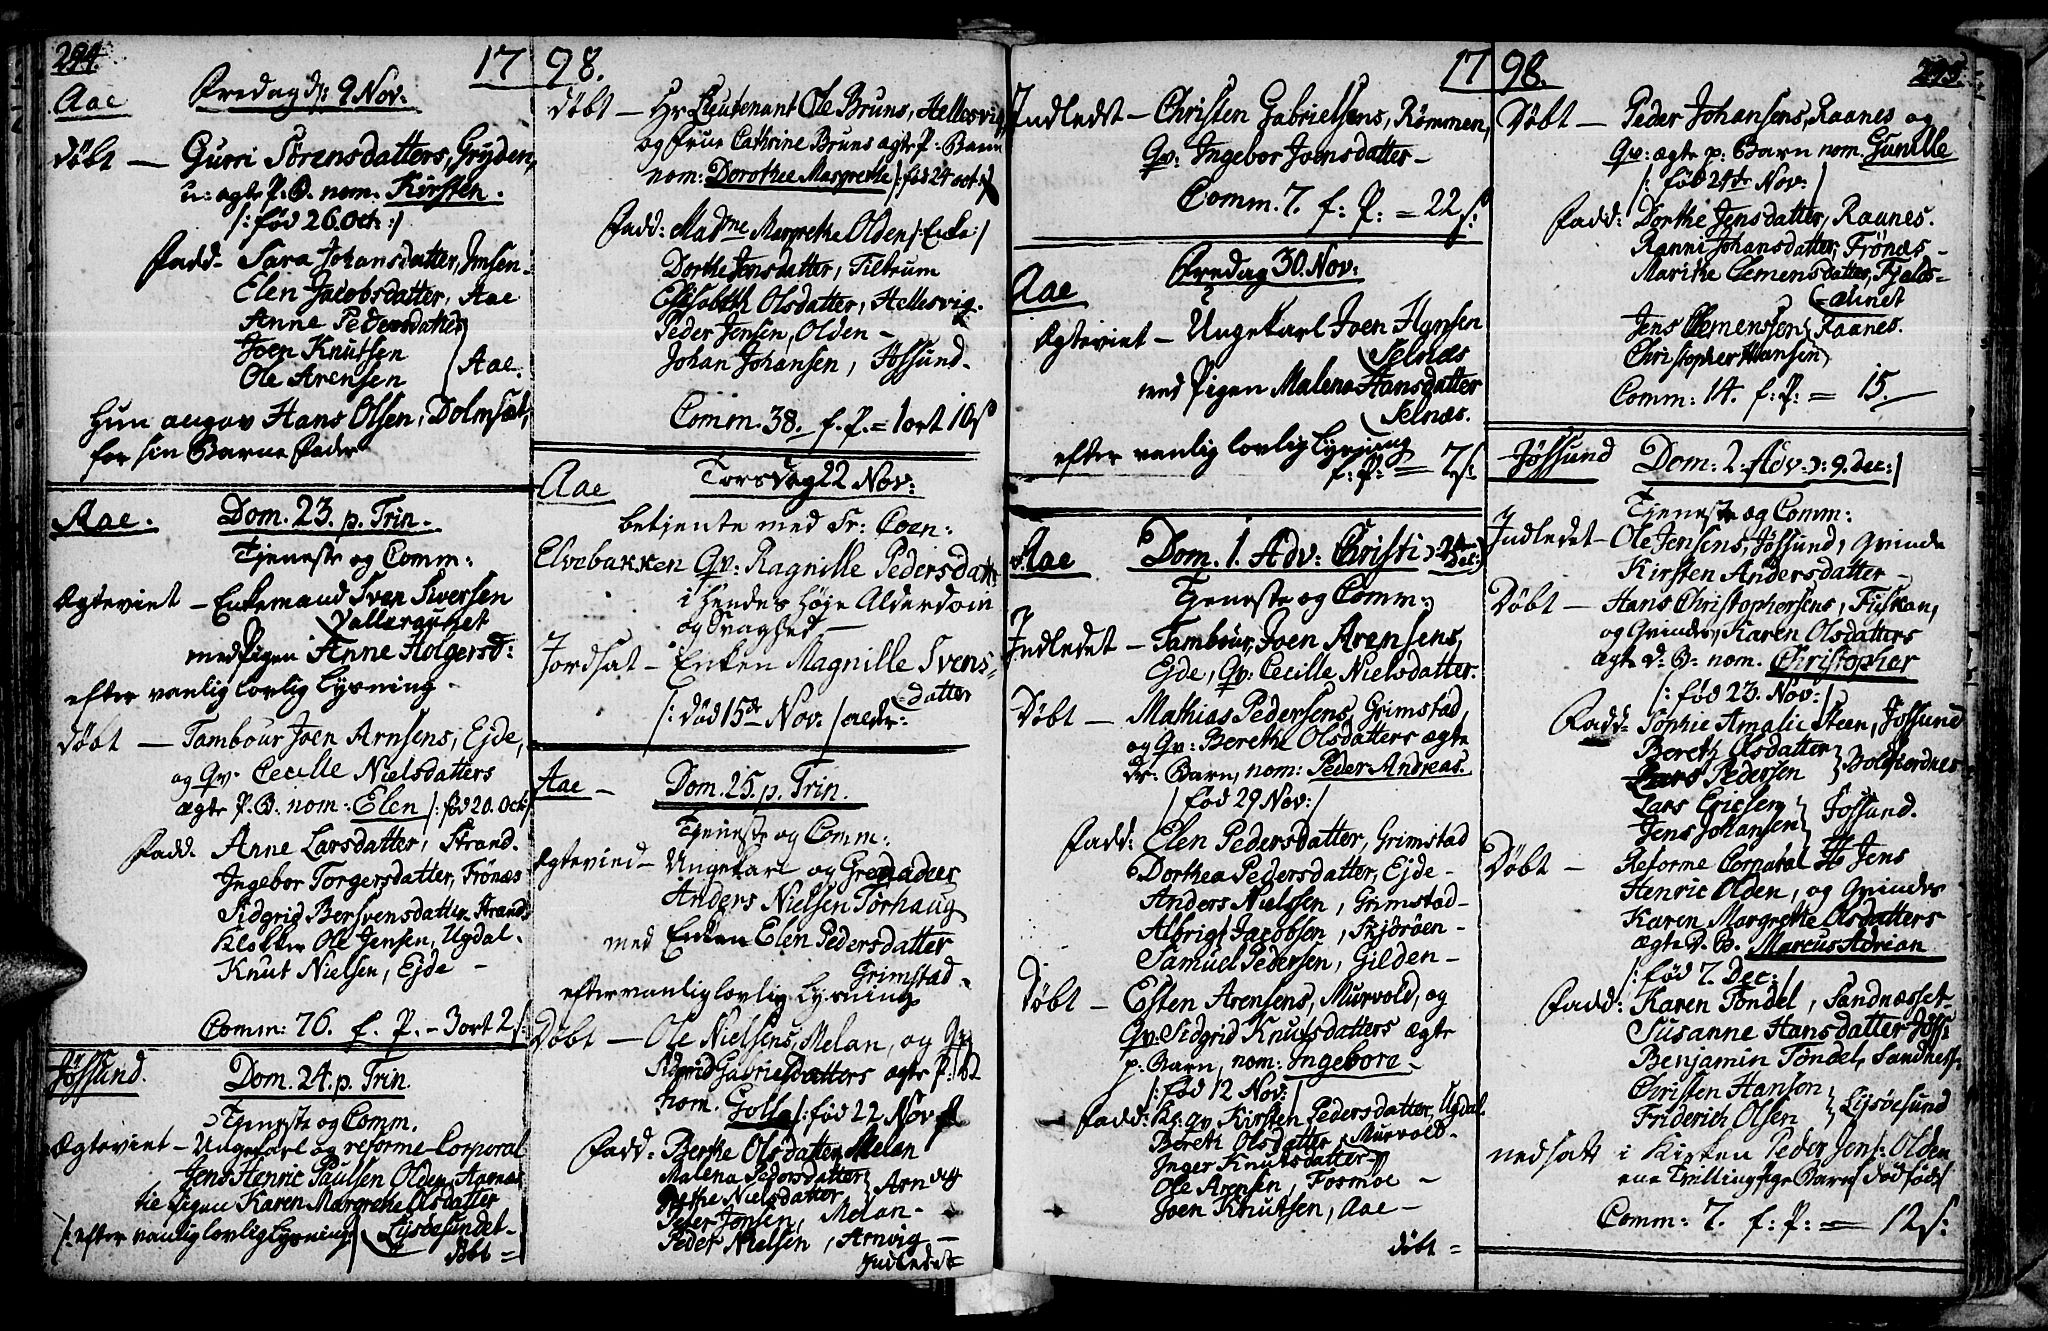 294. 17
Aae Fredag d: 9 Nov:
Døbt — Gurri Sørensdatters, Gryden,
u: ægte P. B. nom. Kirsten.
/: fød 26 Oct: /
Fadd. Sara Johansdatter, Imsen.
Elen Jacobsdatter, Aae
Anne Pedersdatter
Joen Knutsen
Ole Arensen } Aae.
Hun angav Hans Olsen, Dolmsæt,
for sin Barne Fader
Aae. Dom. 23. p. Trin.
Tjeneste og Comm:
Ægteviet — Enkemand Sven Siversen
Vallerauket
med Pigen Anne Holgersd:
efter vanlig lovlig Lysning.
Døbt — Tambour Joen Arnsens, Ejde,
og Qv. Cecille Nielsdatters
ægte P. B. nom: Elen /: fød 20. Oct: /
Fadd. Anne Larsdatter, Strand.
Ingebor Torgersdatter, Frönæs
Sidgrig Bersvensdatter, Strand
Klokker Ole Jensen, Ugdal.
Knut Nielsen, Ejde —
Comm: 76. f. P. — 3 ort 2 s:
Jøssund. Dom. 24. p. Trin.
Tjeneste og Comm.
Ægteviet — Ungekarl og reforme Corporal
Jens Henric Paulsen Olden, Aarnæs
til Pigen Karen Margrethe Olsdatter
/: efter vanlig lovlig Lysning: / Lysøesundet —
Døbt =
98.
Døbt — Hr Lieutenant Ole Bruns, Hellesvig
og Frue Cathrine Bruns ægte P. Barn
nom: Dorothee Margrethe /: fød 24 oct: /
Fadd: Madme Margrethe Olden /: Enke: /
Dorthe Jensdatter, Tiltrum
Elisabeth Olsdatter, Hellesvig.
Peder Jensen, Olden —
Johan Johansen, Jøssund.
Comm. 38. f. P. = 1 ort 16 s
Aae Torsdag 22 Nov:
betjente med Sr: Coen:
Elvebakken Qv: Ragnille Pedersdatt:
i hendes høje Alderdom
og Svaghed —
Jordsat — Enken Magnille Svens=
datter
/: død 15de Nov. / aldr:
Aae — Dom. 25. p. Trin.
Tjeneste og Comm:
Ægteviet — Ungekarl og Grenadeer
Anders Nielsen Tørhaug
med Enken Elen Pedersdatter
Grimstad.
efter vanlig lovlig Lysning
Døbt — Ole Nielsens, Melan, og Qv
Sidgrid Gabrielsdatters ægte P: B:
nom. Golla /: fød 22 Nov: /
Fadd: Berthe Olsdatter, Melan
Malena Pedersdatter
Nielsdatter } Arnvig
Peter Jonsen, Melan —
Peder Nielsen, Arnvig —
Indledet =
17
Indledet — Christen Gabrielsens, Römmen,
Qv: Ingebor Joensdatter —
Comm. 7. f: P: = 22 s:
Aae Fredag 30. Nov:
Ægteviet — Ungekarl Joen Hansen
Selnæs
med Pigen Malena Hansdatter
Selnæs.
efter vanlig lovlig Lysning
f: P: = 7 s:
Aae Dom. 1. Adv: Christi
Tjeneste og Comm:
Indledet — Tambour Joen Arensens
Ejde, Qv: Cecille Nielsdatter.
Døbt — Mathias Pedersens, Grimstad
og Qv: Berethe Olsdatters ægte
Dr: Barn, nom: Peder Andreas.
/ fød 29 Nov: /
Fadd: Elen Pedersdatter, Grimstad
Dorthea Pedersdatter, Ejde —
Anders Nielsen, Grimstad —
Albrigt Jacobsen, Skjöröen —
Samuel Pedersen, Gilden —
Døbt — Esten Arensens, Murvold, og
Qv: Sidgrid Knutsdatters ægte
p: Barn, nom: Ingebore —
/: fød 12 Nov: /
Fadd: Kl: qv. Kirsten Pedersdatter, Ugdal
Bereth Olsdatter, Murvold —
Inger Knutsdatter
Ole Arensen, Fosmoe —
Joen Knutsen, Aae —
Døbt =
98. 295.
Døbt — Peder Johansens, Raanes og
Qv: ægte p: Barn nom. Gunille
/: fød 24de Nov: /
Fadd: Dorthe Jensdatter, Raanes.
Ranni Johansdatter, Frönæs —
Marithe Clemensdatter, Fjelds=
Jens Clemenssen } Raanes.
Christopher Hansen
Comm: 14. f: P: = 15. —
Jøssund Dom: 2. Adv: 9. Dec: /
Tjeneste og Comm:
Indledet — Ole Jensens, Jøssund, Qvinde
Kirsten Andersdatter —
Døbt — Hans Christophersens, Fiskan,
og Qvindes, Karen Olsdatters
ægte d: B: nom. Christopher
/: fød 23. Nov: /
Fadd: Sophie Amalie Steen, Jøssund
Bereth Olsdatter
Lars Pedersen
Lars Ericsen
Jens Johansen } Jøssund.
Døbt — Reforme Corporal Hr Jens
Henric Olden, og Qvindes
Karen Margrethe Olsdatters
ægte D. B. Marcus Adrian
/: fød 7. Dec: /
Fadd: Karen Töndel, Sandnæsset —
Susanne Hansdatter Jøss:
Benjamin Töndel, Sandness —
Christen Hansen
Friderich Olsen } Lysöesund
nedsatt i Kirken Peder Jens: Olden
ene Trilling Pige Barn / Dødfød /
Comm: 7. f: P: = 12 s: